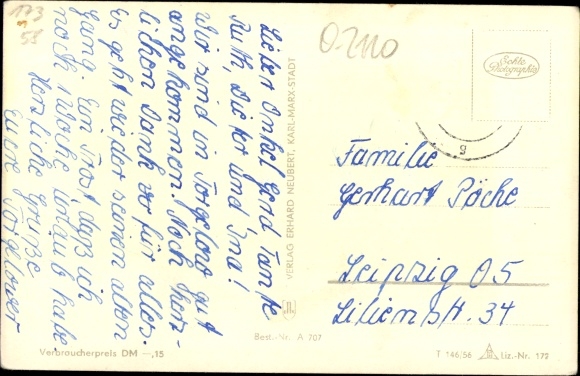 Lieber Onkel Gerd Tante
Ruth, Dieter und Ina!
Wir sind in Torgelow gut
angekommen! Noch herz-
lichen Dank für alles.
Es geht wieder seinen alten
Gang Ein Trost daß ich
noch 1 Woche Urlaub habe
Herzliche Grüße
Eure Torgelower
173
55
O-2110
Echte
Photographie
9
Familie
Gerhart Pöche
Leipzig O5
Lilienstr. 34
VERLAG ERHARD NEUBERT, KARL-MARX-STADT
Best.-Nr. A 707
Verbraucherpreis DM —,15
T 146/56 Liz.-Nr. 179